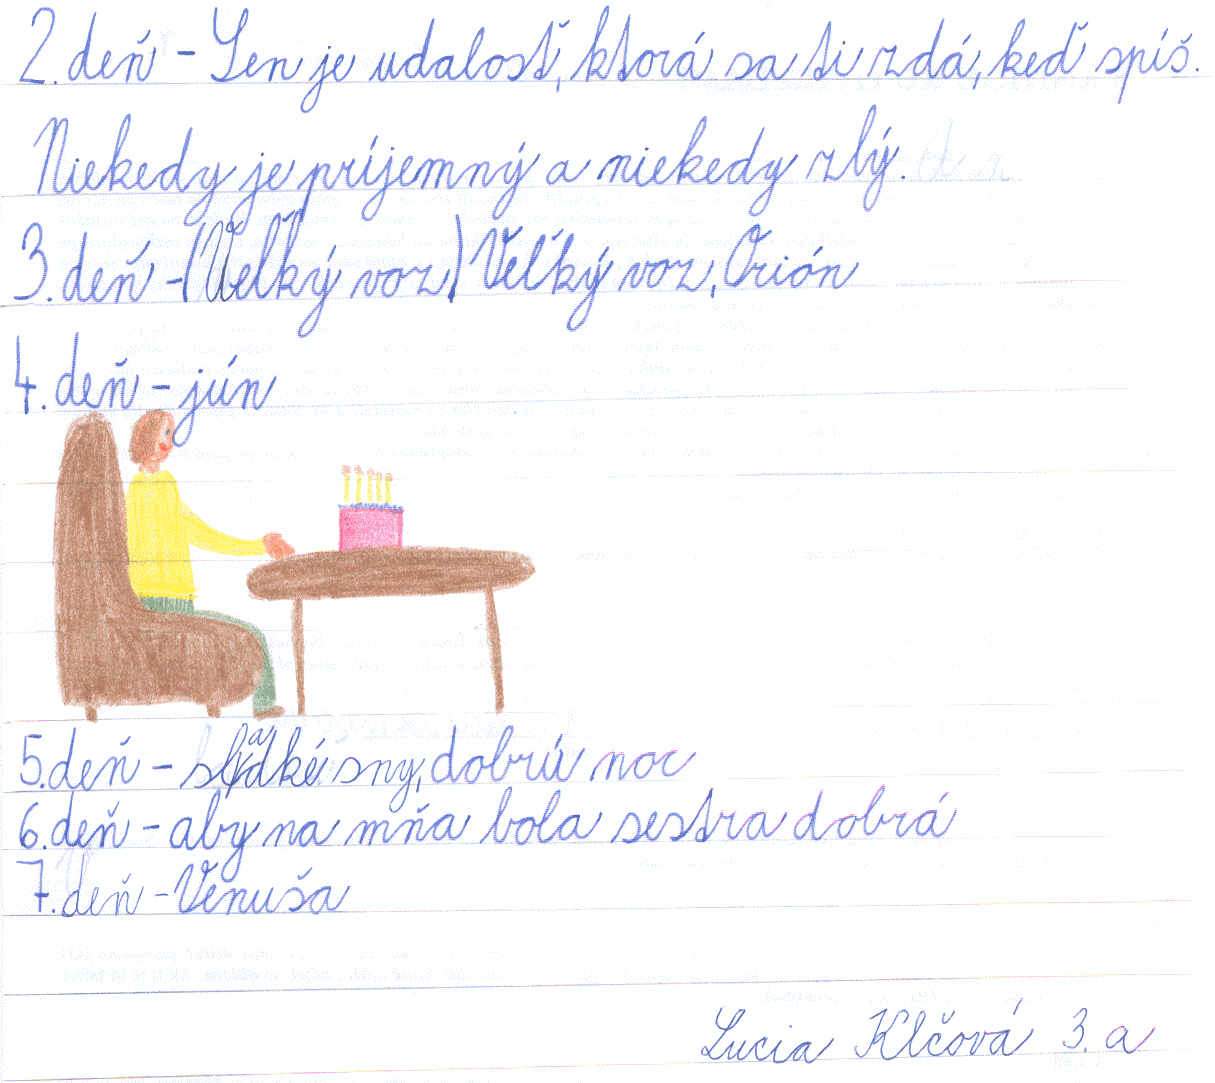 2. deň - Sen je udalosť, ktorá sa ti zdá, keď spíš.
Niekedy je príjemný a niekedy zlý.
3. deň - (Veľký voz) Veľký voz, Orión
4. deň - jún
5. deň - sladké sny, dobrú noc
6. deň - aby na mňa bola sestra dobrá
7. deň - Venuša
Lucia Klčová 3. a